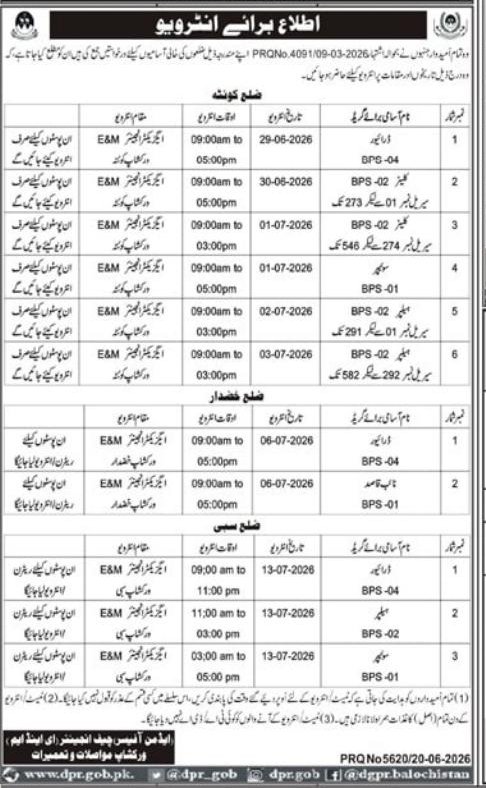 اطلاع برائے انٹرویو
وہ تمام اُمیدوار جنہوں نے بحوالہ اشتہار PRQNo.4091/09-03-2026 اپنے مندرجہ ذیل ضلعوں کی خالی آسامیوں کیلئے درخواستیں جمع کی ہیں ان کو مطلع کیا جاتا ہے، کہ
وہ درج ذیل تاریخوں اور مقامات پر انٹرویو کیلئے حاضر ہو جائیں۔
ضلع کوئٹہ
نمبر شمار نام آسامی برائے گریڈ تاریخ انٹرویو اوقات انٹرویو مقام انٹرویو
1 ڈرائیور 29-06-2026 09:00am to ایگزیکٹو انجینئر E&M ان پوسٹوں کیلئے صرف
BPS-04 05:00pm ورکشاپ کوئٹہ انٹرویو کیئے جائیں گے
2 کلینر BPS -02 30-06-2026 09:00am to ایگزیکٹو انجینئر E&M ان پوسٹوں کیلئے صرف
سیریل نمبر 01 سے لیکر 273 تک 05:00pm ورکشاپ کوئٹہ انٹرویو کیئے جائیں گے
3 کلینر BPS -02 01-07-2026 09:00am to ایگزیکٹو انجینئر E&M ان پوسٹوں کیلئے صرف
سیریل نمبر 274 سے لیکر 546 تک 03:00pm ورکشاپ کوئٹہ انٹرویو کیئے جائیں گے
4 سویپر 01-07-2026 09:00am to ایگزیکٹو انجینئر E&M ان پوسٹوں کیلئے صرف
BPS-01 05:00pm ورکشاپ کوئٹہ انٹرویو کیئے جائیں گے
5 ہیلپر BPS -02 02-07-2026 09:00am to ایگزیکٹو انجینئر E&M ان پوسٹوں کیلئے صرف
سیریل نمبر 01 سے لیکر 291 تک 03:00pm ورکشاپ کوئٹہ انٹرویو کیئے جائیں گے
6 ہیلپر BPS -02 03-07-2026 09:00am to ایگزیکٹو انجینئر E&M ان پوسٹوں کیلئے صرف
سیریل نمبر 292 سے لیکر 582 تک 03:00pm ورکشاپ کوئٹہ انٹرویو کیئے جائیں گے
ضلع خضدار
نمبر شمار نام آسامی برائے گریڈ تاریخ انٹرویو اوقات انٹرویو مقام انٹرویو
1 ڈرائیور 06-07-2026 09:00am to ایگزیکٹو انجینئر E&M ان پوسٹوں کیلئے
BPS-04 05:00pm ورکشاپ خضدار ریٹرن/انٹرویو لیا جائیگا
2 نائب قاصد 06-07-2026 09:00am to ایگزیکٹو انجینئر E&M ان پوسٹوں کیلئے
BPS-01 05:00pm ورکشاپ خضدار ریٹرن/انٹرویو لیا جائیگا
ضلع سبی
نمبر شمار نام آسامی برائے گریڈ تاریخ انٹرویو اوقات انٹرویو مقام انٹرویو
1 ڈرائیور 13-07-2026 09;00 am to ایگزیکٹو انجینئر E&M ان پوسٹوں کیلئے ریٹرن
BPS-04 11:00 pm ورکشاپ سبی /انٹرویو لیا جائیگا
2 ہیلپر 13-07-2026 11;00 am to ایگزیکٹو انجینئر E&M ان پوسٹوں کیلئے ریٹرن
BPS-02 03:00 pm ورکشاپ سبی /انٹرویو لیا جائیگا
3 سویپر 13-07-2026 03;00 am to ایگزیکٹو انجینئر E&M ان پوسٹوں کیلئے ریٹرن
BPS-01 05:00 pm ورکشاپ سبی /انٹرویو لیا جائیگا
(1) تمام اُمیدواروں کو ہدایت کی جاتی ہے کہ ٹیسٹ/انٹرویو کے لئے اوپر دیئے گئے وقت کی پابندی کریں، اس سلسلے میں کسی قسم کے عذر کو قبول نہیں کیا جائیگا۔ (2) ٹیسٹ/انٹرویو
کے دن تمام (اصل) کاغذات ہمراہ لانا لازمی ہیں۔ (3) ٹیسٹ/انٹرویو کے آنے والوں کو کوئی ٹی اے/ڈی اے نہیں دیا جائیگا۔
(ایڈمن آفیس چیف انجینئر (ای اینڈ ایم)
ورکشاپ مواصلات و تعمیرات
PRQ No5620/20-06-2026
www.dpr.gob.pk. @dpr_gob dpr.gob.pk @dgpr.balochistan